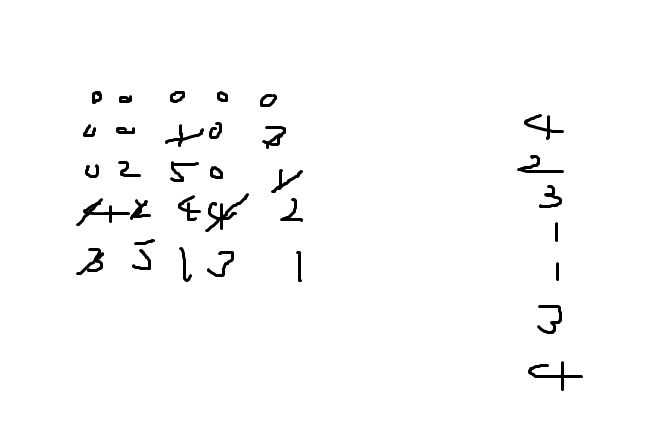 0 0 0 0 0
0 0 1 0 3
0 2 5 0 1
4 2 4 4 2
3 5 1 3 1
4
2
3
1
1
3
4